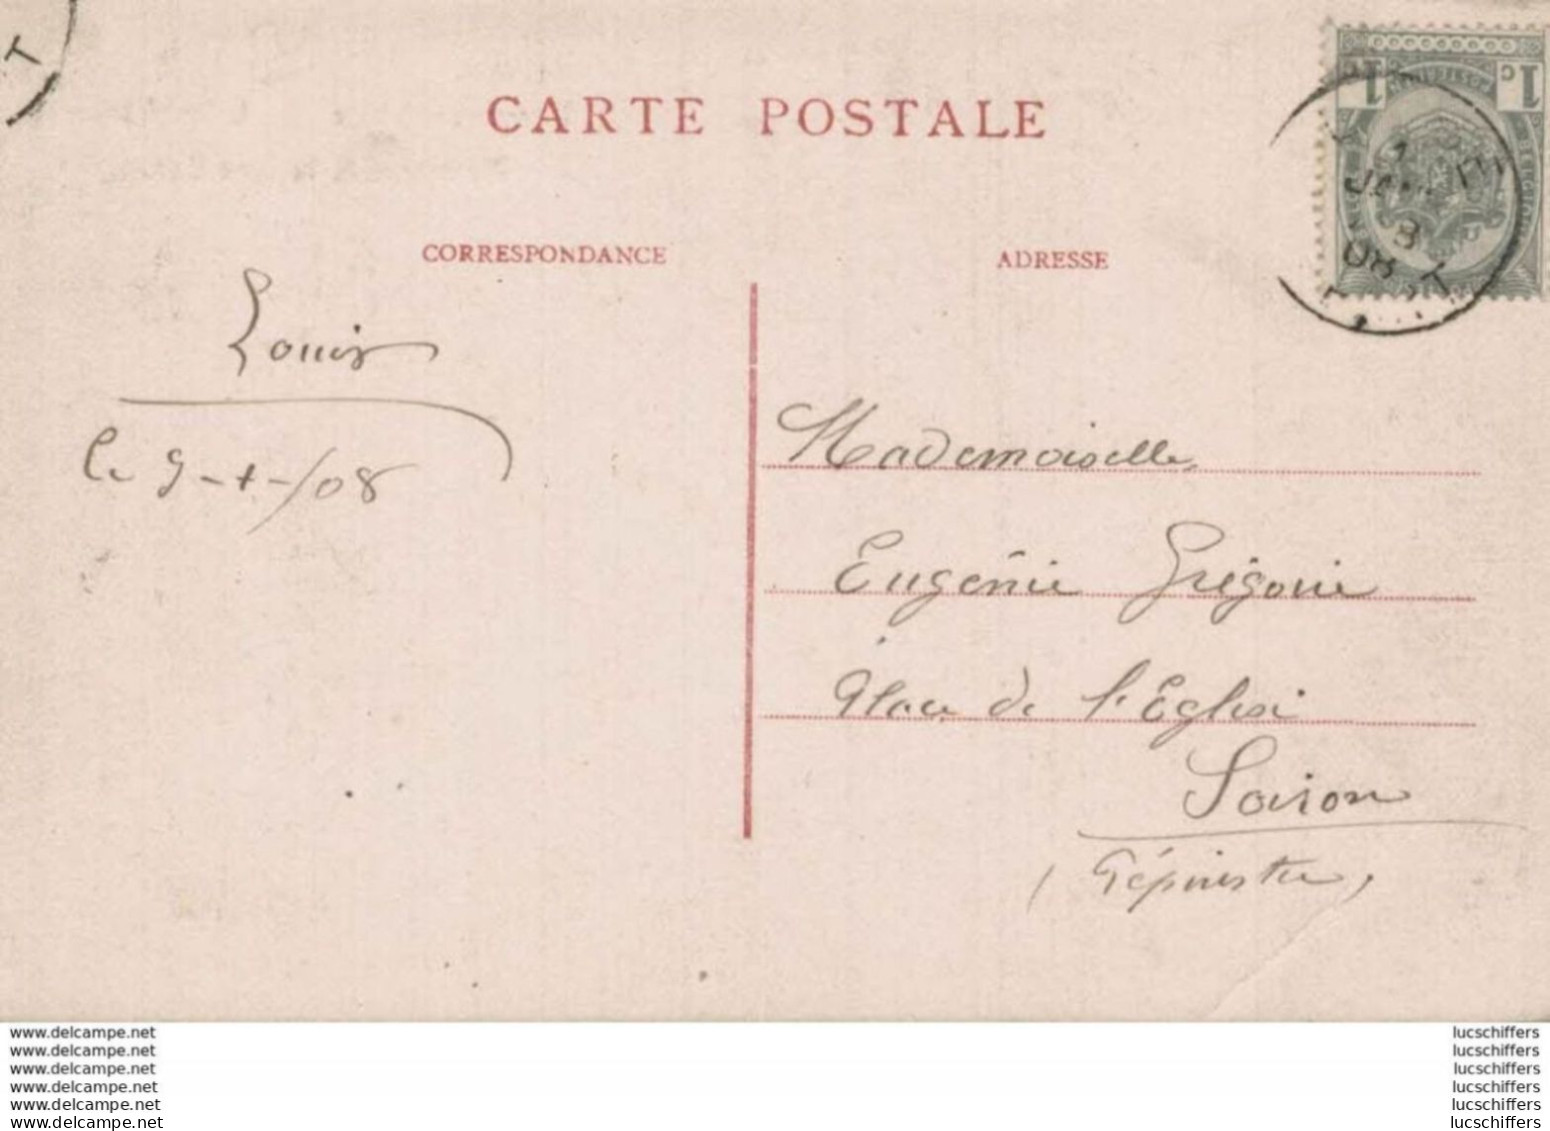 T
CARTE POSTALE
1 C
1
JANV
8
08
CORRESPONDANCE
ADRESSE
Louis
Le 9-1-/08
Mademoiselle
Eugénie Grégoire
Place de l'Eglise
Soiron
(Pépinster)
www.delcampe.net
www.delcampe.net
www.delcampe.net
www.delcampe.net
www.delcampe.net
www.delcampe.net
lucschiffers
lucschiffers
lucschiffers
lucschiffers
lucschiffers
lucschiffers